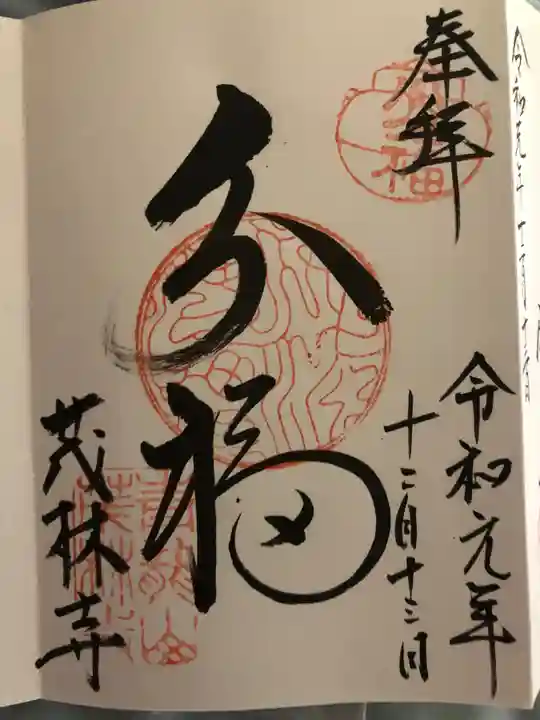 奉拝
令和元年
十二月十三日
分福
茂林寺